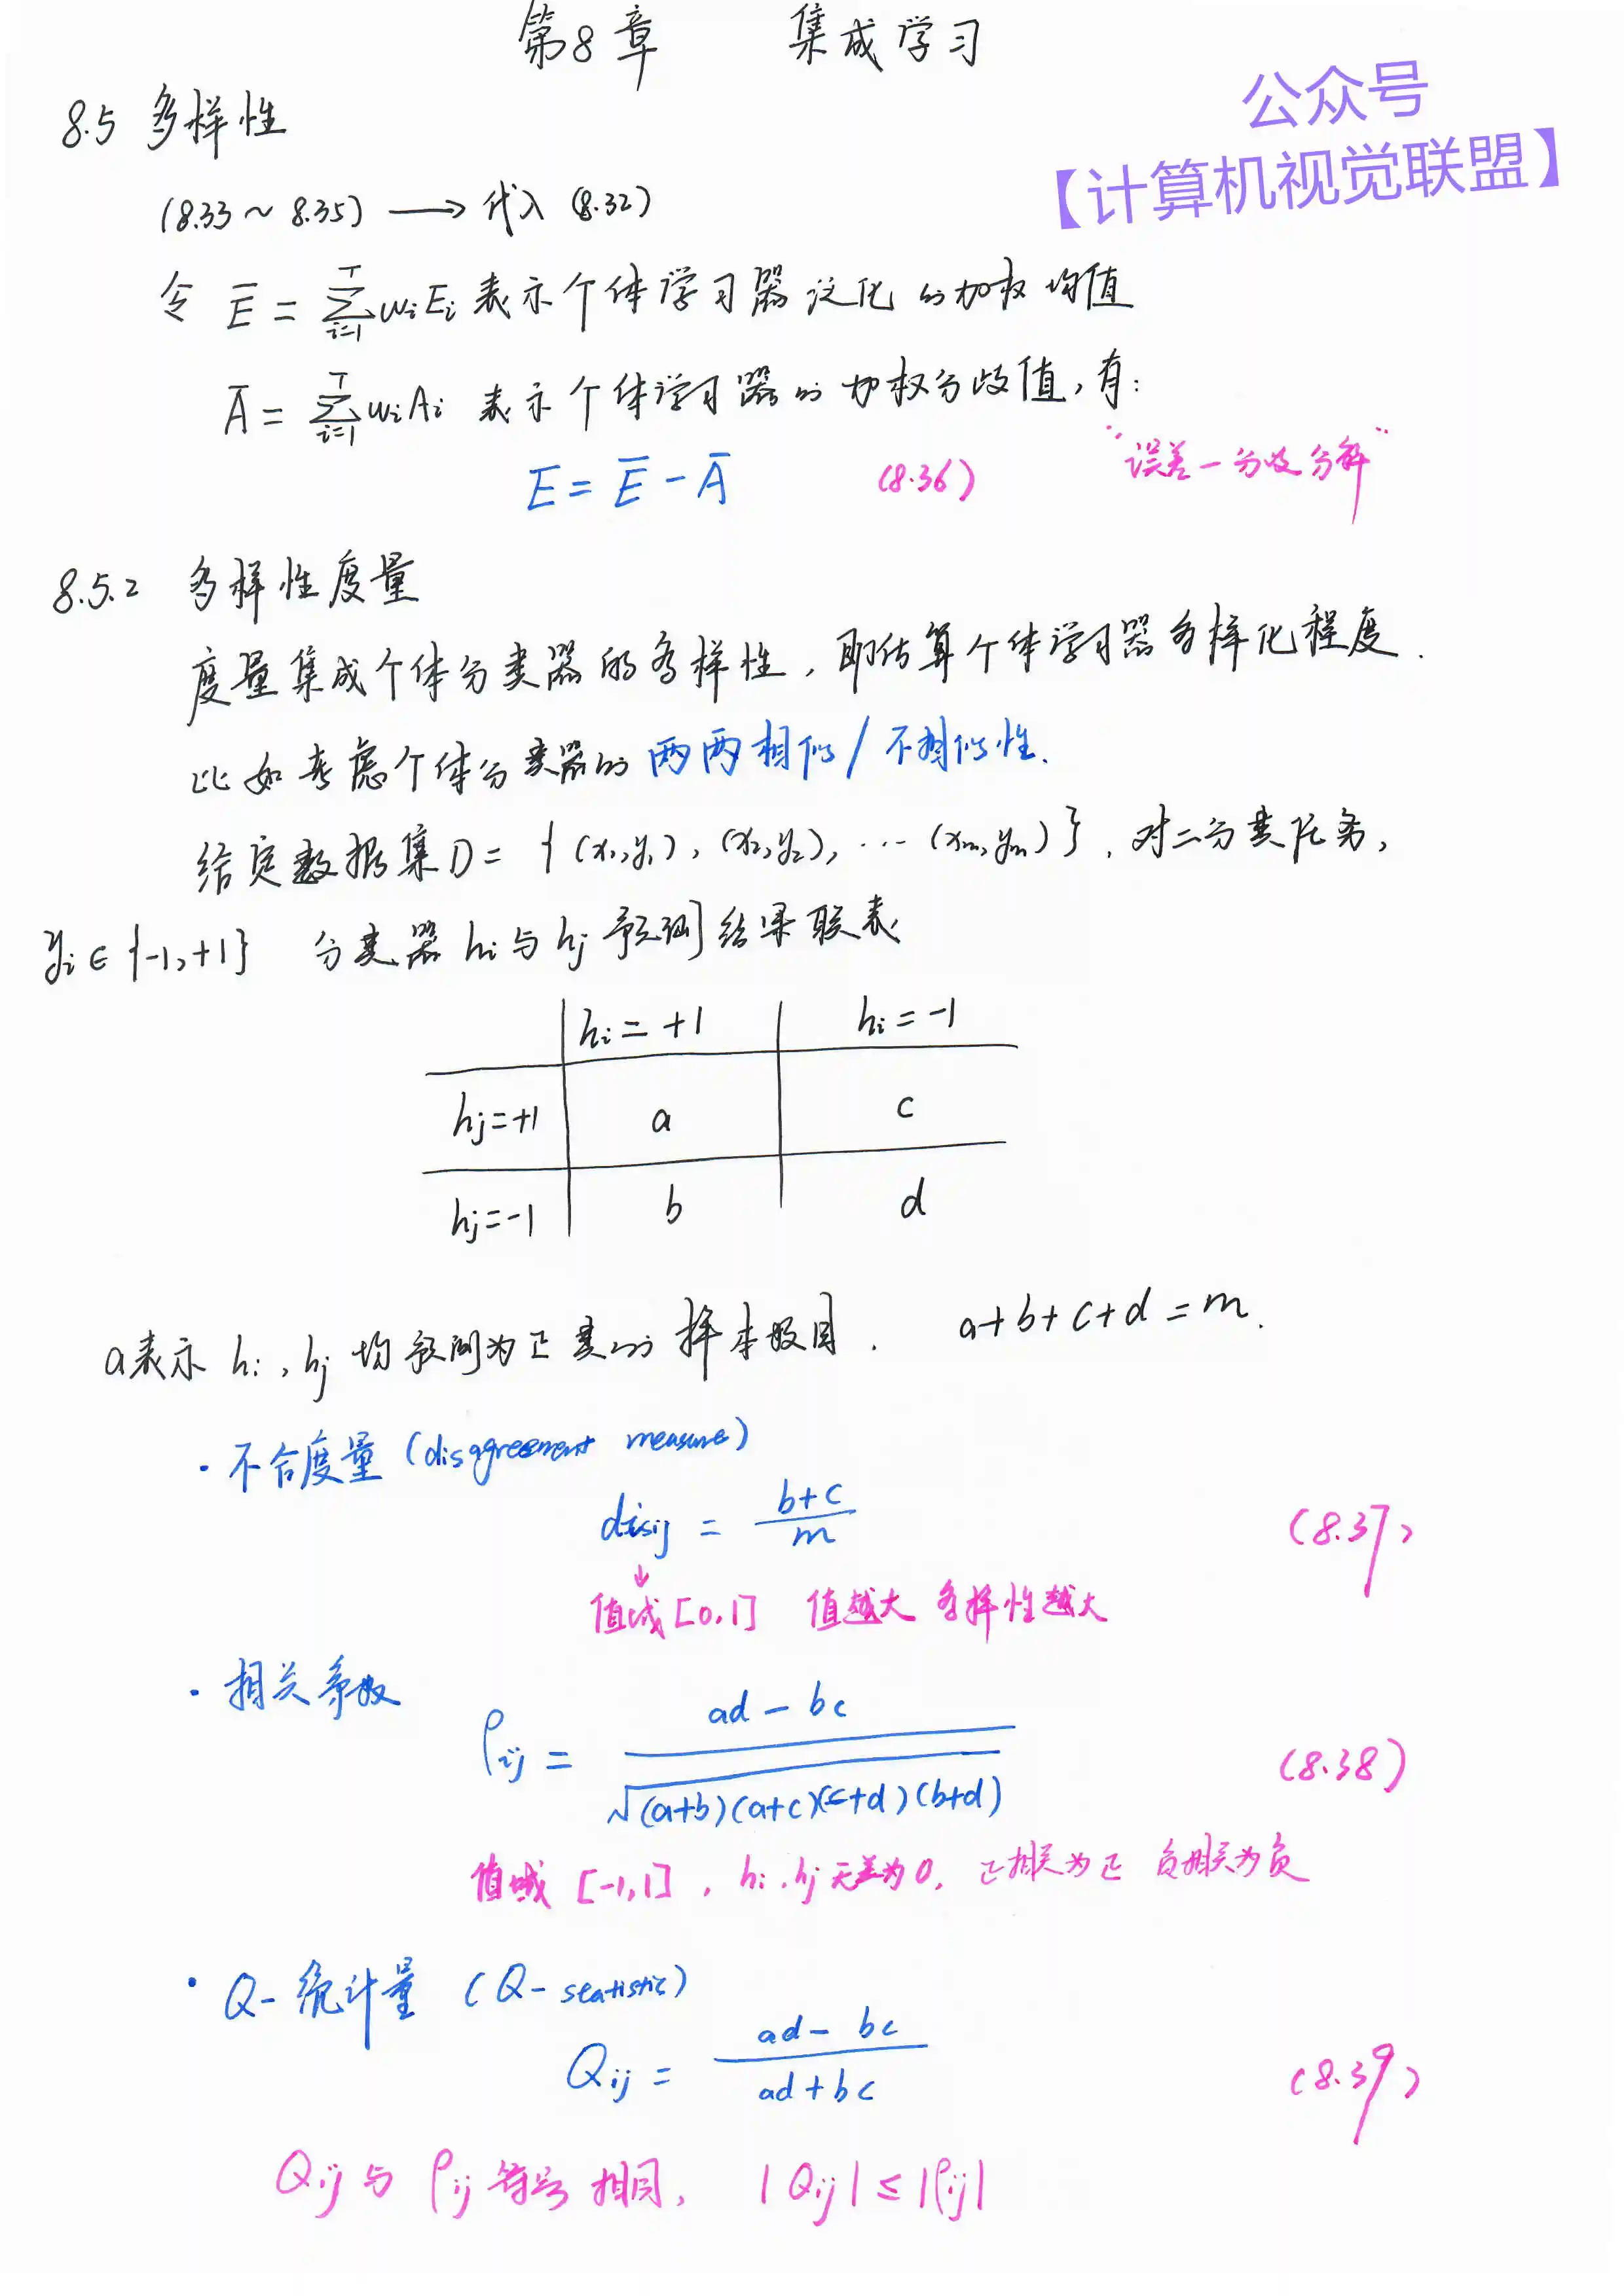 第8章 集成学习
公众号
【计算机视觉联盟】
8.5 多样性
(8.33 ~ 8.35) → 代入 (8.32)
令 Ē = Σ_{i=1}^{T} wᵢEᵢ 表示个体学习器泛化的加权均值
Ā = Σ_{i=1}^{T} wᵢAᵢ 表示个体学习器的加权分歧值,有:
E = Ē - Ā (8.36) "误差-分歧分解"
8.5.2 多样性度量
度量集成个体分类器的多样性,即估算个体学习器多样化程度.
比如考虑个体分类器的两两相似/不相似性.
给定数据集D = {(x₁,y₁), (x₂,y₂), ... (xₘ,yₘ)}, 对二分类任务,
yᵢ ∈ {-1,+1} 分类器 hᵢ与hⱼ 预测结果联表
hᵢ = +1 hᵢ = -1
hⱼ=+1 a c
hⱼ=-1 b d
a表示 hᵢ,hⱼ 均预测为正类的样本数目. a+b+c+d = m.
· 不合度量 (disagreement measure)
disᵢⱼ = (b+c)/m (8.37)
↓
值域[0,1] 值越大 多样性越大
· 相关系数
ρᵢⱼ = (ad - bc)/√((a+b)(a+c)(c+d)(b+d)) (8.38)
值域 [-1,1], hᵢ,hⱼ无关为0, 正相关为正 负相关为负
· Q-统计量 (Q-statistic)
Qᵢⱼ = (ad - bc)/(ad + bc) (8.39)
Qᵢⱼ与 ρᵢⱼ 符号相同, |Qᵢⱼ| ≤ |ρᵢⱼ|